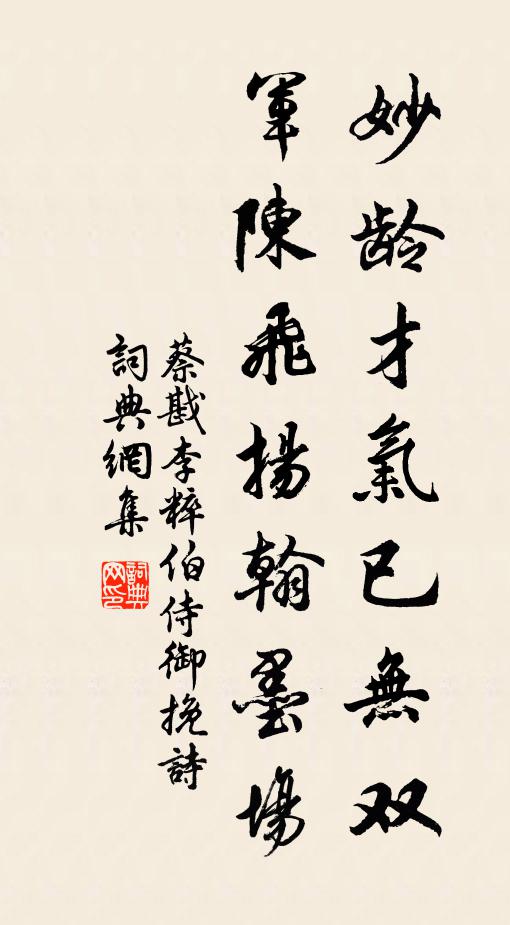 妙龄才氣已無双
軍陳飛揚翰墨場
蔡戡李粹伯侍御挽詩
詞典網集
詞典网印